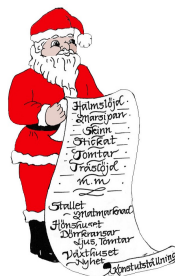 Halmslöjd
Marsipan
Skinn
Stickat
Tomtar
Träslöjd
m.m
Stallet
Matmarknad
Hönshuset
Dörrkransar
Ljus, Tomtar
Växthuset
Nyhet
Konstutställning